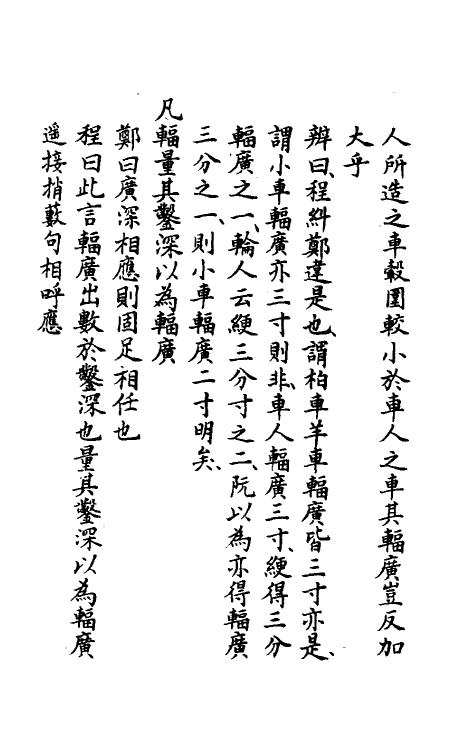 人所造之車轂圍較小於車人之車其輻廣豈反加
大乎
辨曰、程糾鄭違是也、謂柏車羊車輻廣皆三寸亦是、
謂小車輻廣亦三寸則非、車人輻廣三寸、綆得三分
輻廣之一、輪人云綆三分寸之二、阮以為亦得輻廣
三分之一、則小車輻廣二寸明矣、
凡輻量其鑿深以為輻廣
鄭曰廣深相應則固足相任也
程曰此言輻廣出數於鑿深也量其鑿深以為輻廣
遥接捎藪句相呼應